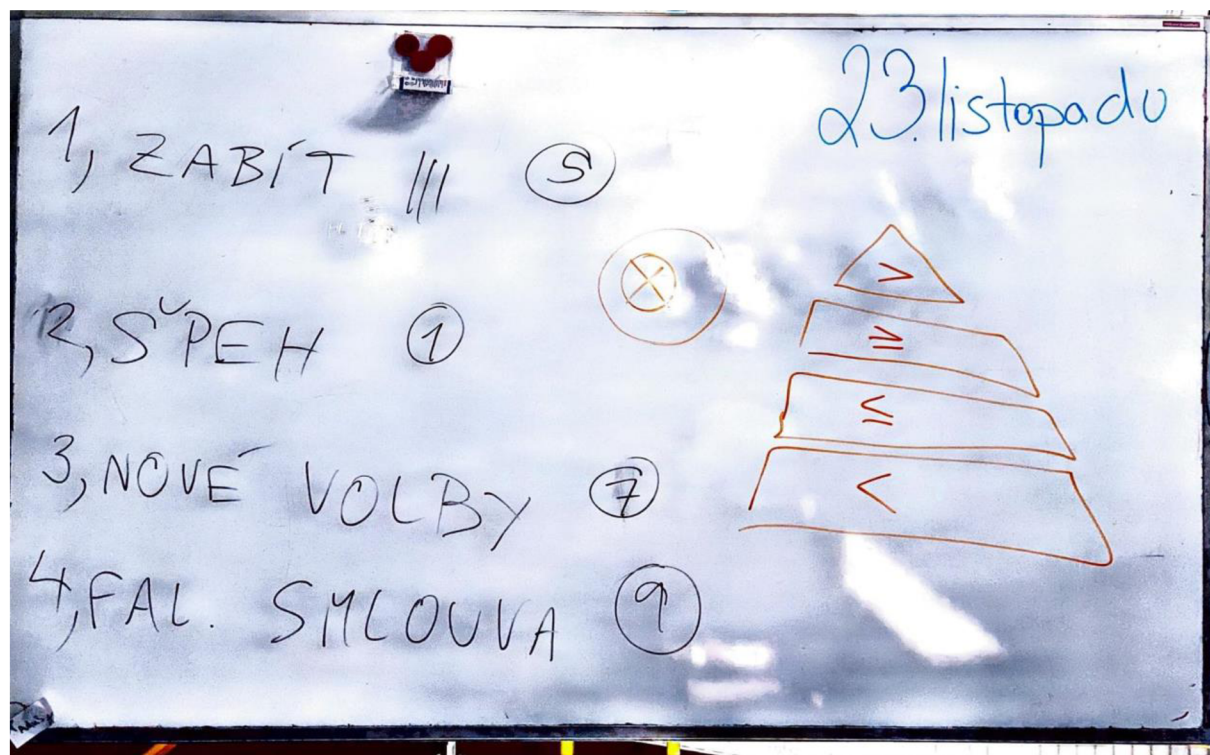 23. listopadu
1, ZABÍT ||| Ⓢ
2, ŠPEH ①
3, NOVÉ VOLBY ⑦
4, FAL. SMLOUVA ⑨
>
≥
≤
<